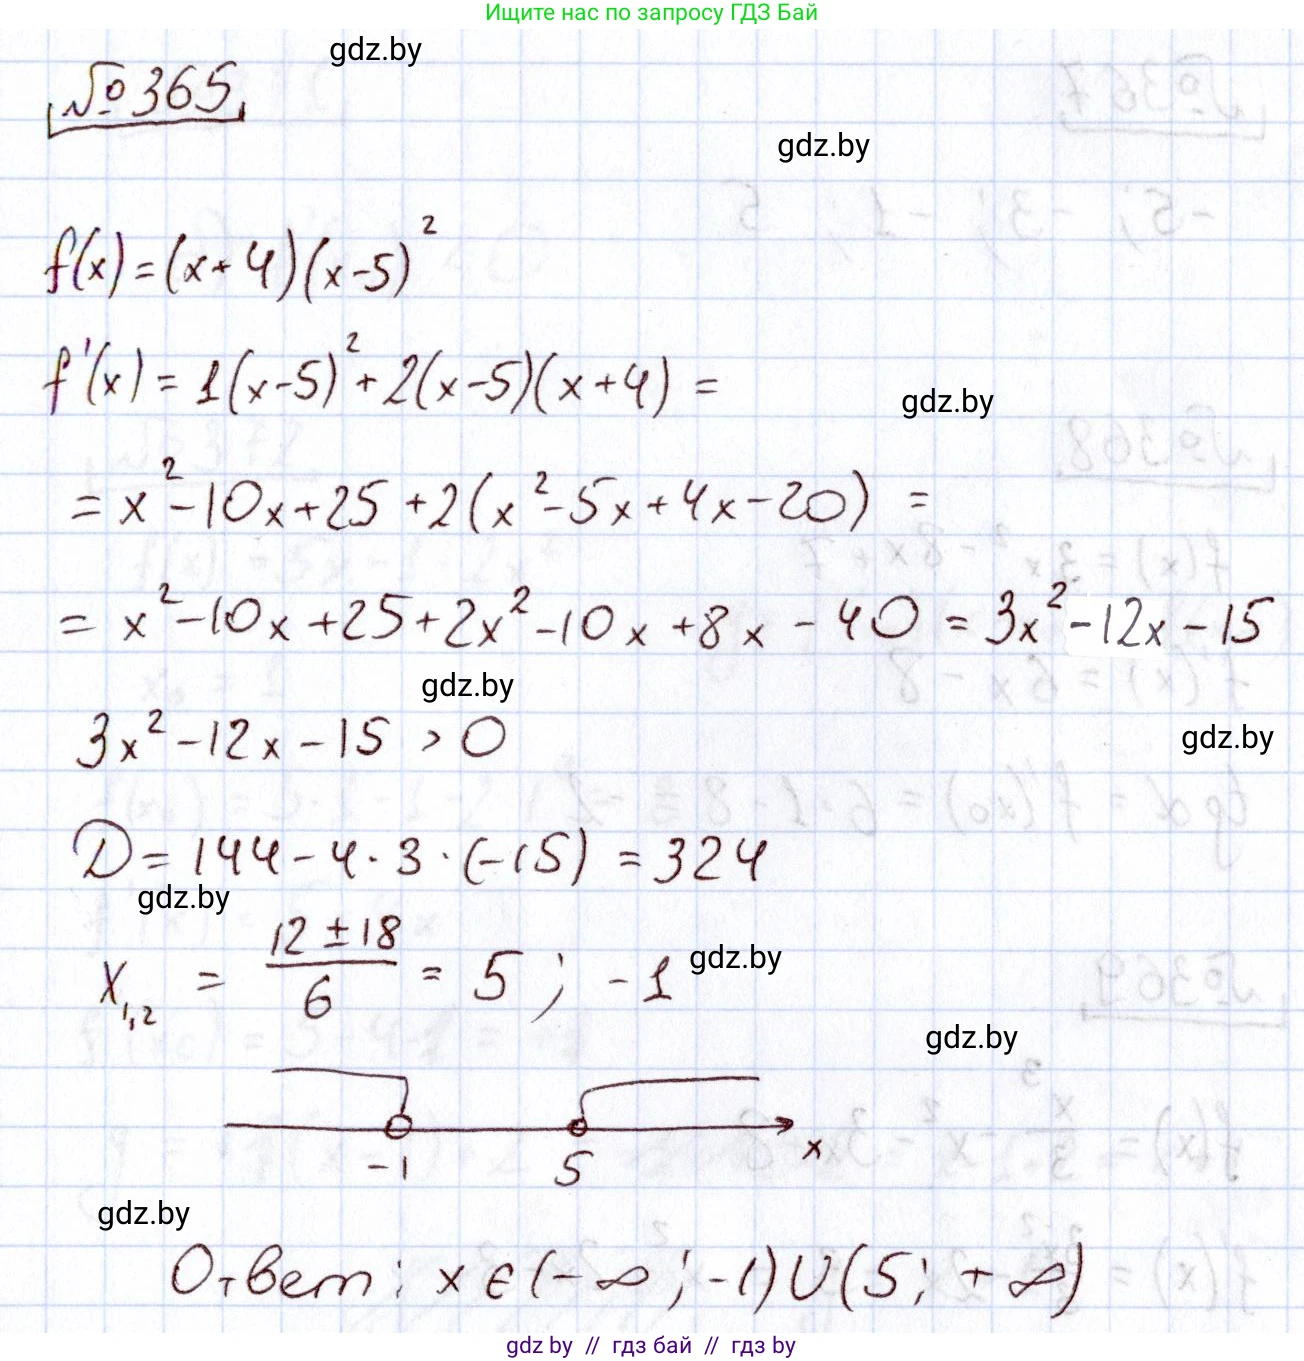 Ищите нас по запросу ГДЗ Бай
gdz.by
№365
gdz.by
f(x) = (x+4)(x-5)²
f'(x) = 1(x-5)² + 2(x-5)(x+4) =
gdz.by
= x² - 10x + 25 + 2(x² - 5x + 4x - 20) =
= x² - 10x + 25 + 2x² - 10x + 8x - 40 = 3x² - 12x - 15
gdz.by
3x² - 12x - 15 > 0
gdz.by
D = 144 - 4·3·(-15) = 324
gdz.by
x₁,₂ = (12 ± 18)/6 = 5; -1
gdz.by
gdz.by
-1 5 x
gdz.by
Ответ: x ∈ (-∞; -1) ∪ (5; +∞)
gdz.by // гдз бай // гдз by